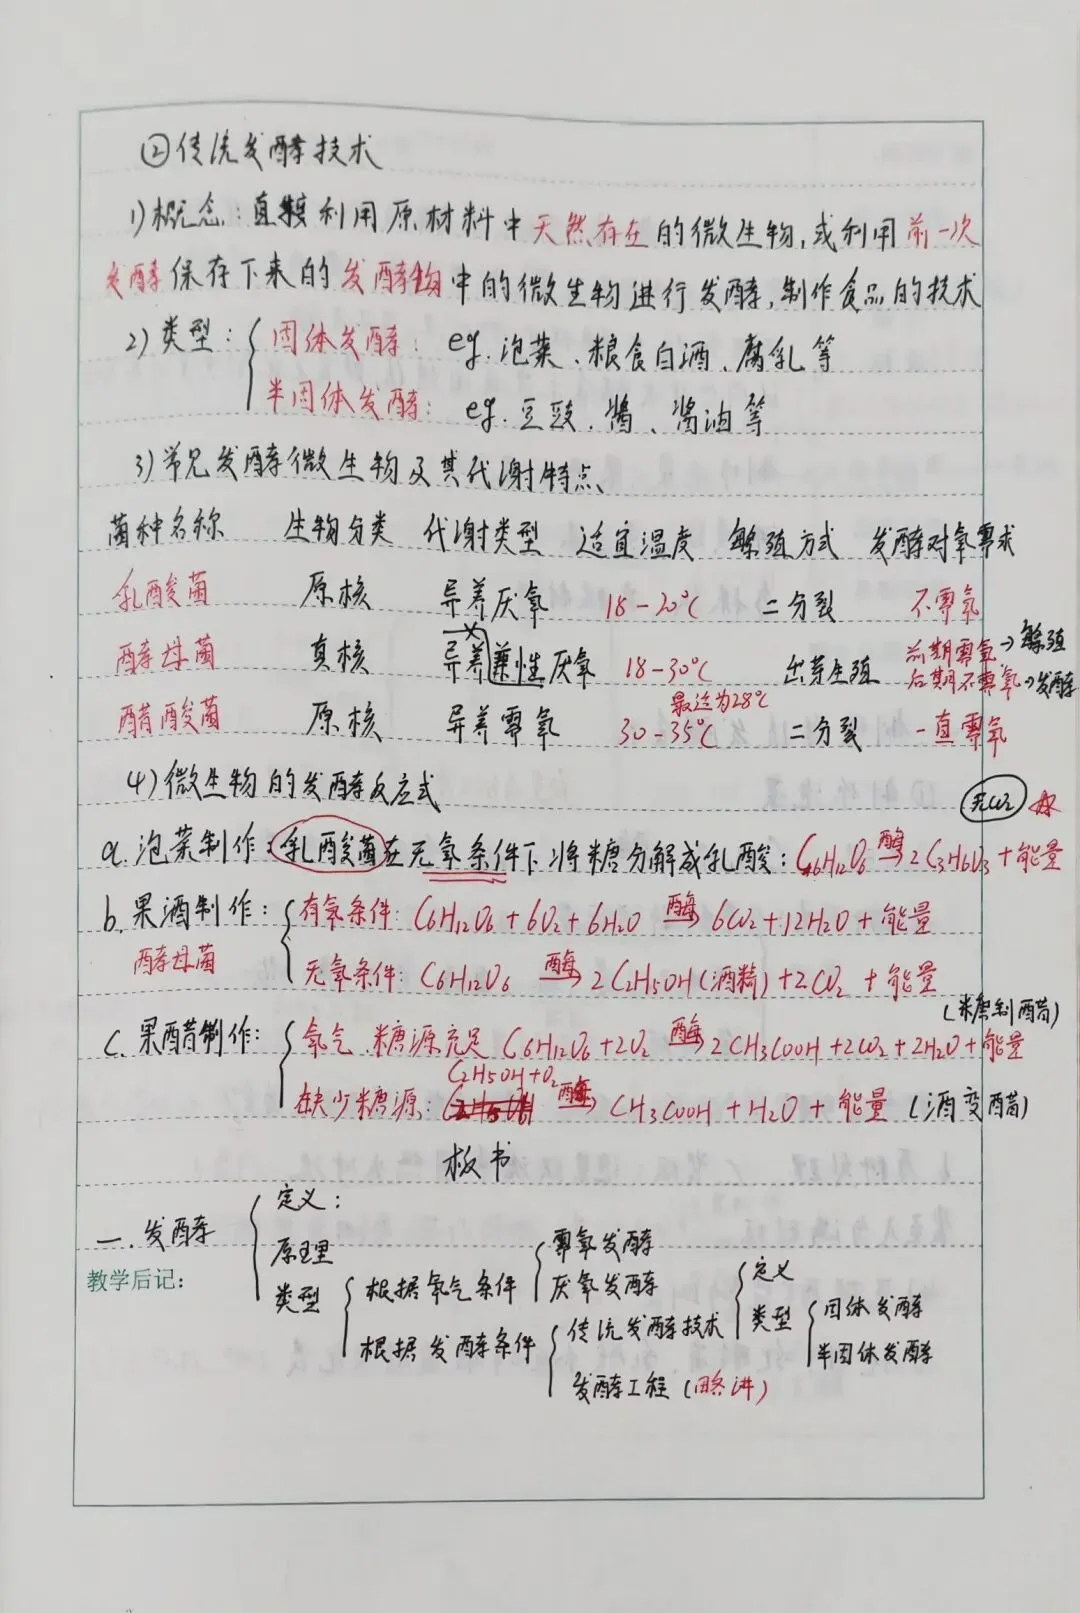 ②传统发酵技术
1)概念:直接利用原材料中天然存在的微生物,或利用前一次
发酵保存下来的发酵物中的微生物进行发酵,制作食品的技术
2)类型:{固体发酵: eg.泡菜、粮食白酒、腐乳等
半固体发酵: eg.豆豉、酱、酱油等
3)常见发酵微生物及其代谢特点、
菌种名称 生物分类 代谢类型 适宜温度 繁殖方式 发酵对氧需求
乳酸菌 原核 异养厌氧 18-20℃ 二分裂 不需氧
酵母菌 真核 异养兼性厌氧 18-30℃ 出芽生殖 前期需氧→繁殖
最适为28℃ 后期不需氧→发酵
醋酸菌 原核 异养需氧 30-35℃ 二分裂 一直需氧
4)微生物的发酵反应式
无CO2
a.泡菜制作:乳酸菌在无氧条件下将糖分解成乳酸:C6H12O6 酶→ 2C3H6O3+能量
b.果酒制作:{有氧条件:C6H12O6+6O2+6H2O 酶→ 6CO2+12H2O+能量
酵母菌 无氧条件:C6H12O6 酶→ 2C2H5OH(酒精)+2CO2+能量
(糖制醋)
c.果醋制作:{氧气.糖源充足 C6H12O6+2O2 酶→ 2CH3COOH+2CO2+2H2O+能量
缺少糖源:C2H5OH+O2 酶→ CH3COOH+H2O+能量(酒变醋)
板书
一.发酵{定义:
原理
类型{根据氧气条件{需氧发酵
厌氧发酵
根据发酵条件{传统发酵技术{定义
类型{固体发酵
半固体发酵
发酵工程(略讲)
教学后记: